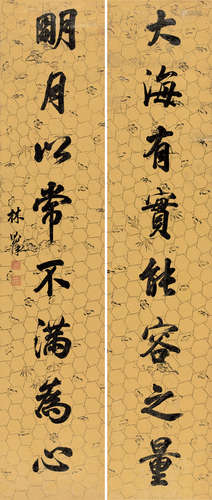 大海有實能容之量
明月以常不滿為心